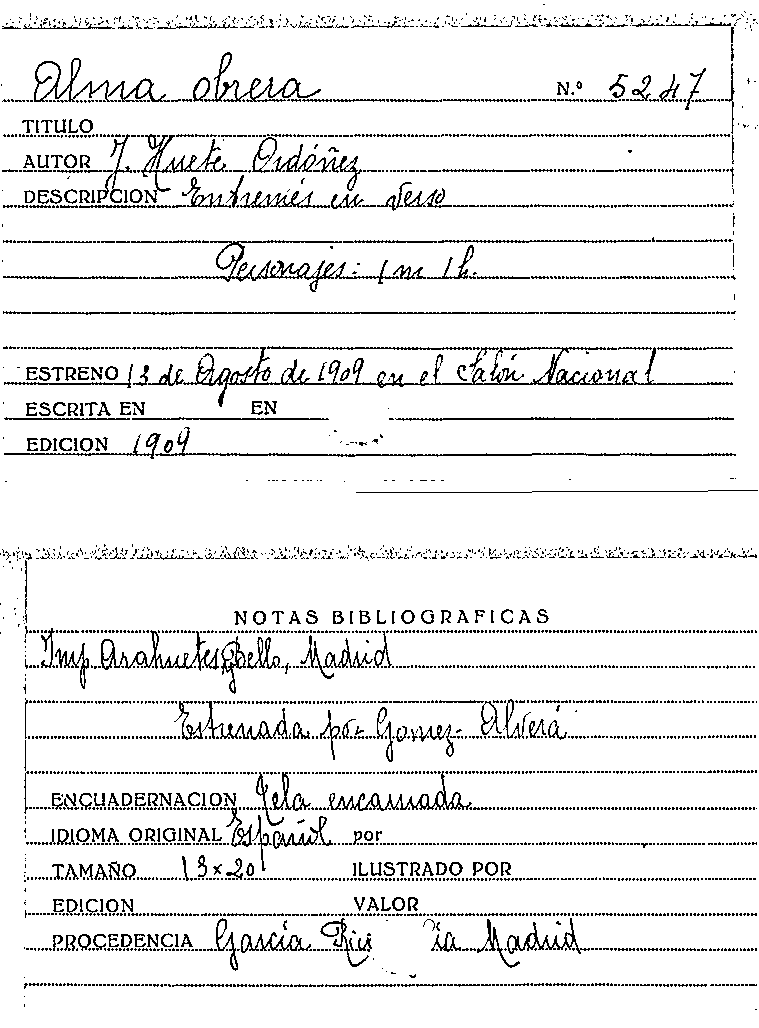 Alma obrera N.º 5247
TITULO
AUTOR J. Huete Ordóñez
DESCRIPCION Entremés en verso
Personajes: 1 m 1 h.
ESTRENO 13 de Agosto de 1909 en el Salón Nacional
ESCRITA EN EN
EDICION 1909
NOTAS BIBLIOGRAFICAS
Imp. Arahuetes y Bello, Madrid
Estrenada por Gomez- Alverá
ENCUADERNACION Tela encarnada
IDIOMA ORIGINAL Español por
TAMAÑO 13x20 ILUSTRADO POR
EDICION VALOR
PROCEDENCIA García Rico Madrid